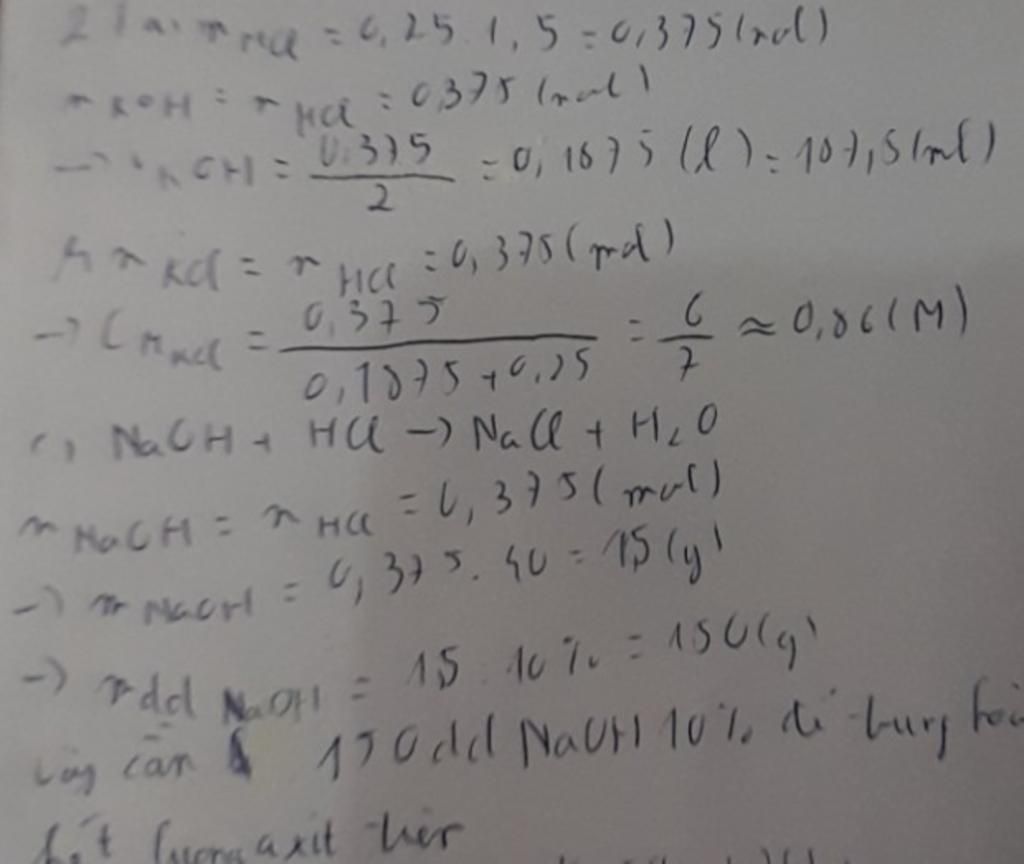 2 1 a. n HCl = 0,25 . 1,5 = 0,375 (mol)
n KOH = n HCl = 0,375 (mol)
→ V KOH = 0,375 / 2 = 0,1875 (l) = 187,5 (ml)
n KCl = n HCl = 0,375 (mol)
→ CM KCl = 0,375 / 0,1875 + 0,25 = 6 / 7 ≈ 0,86 (M)
c, NaOH + HCl → NaCl + H2O
n NaOH = n HCl = 0,375 (mol)
→ m NaOH = 0,375 . 40 = 15 (g)
→ m dd NaOH = 15 . 10% = 150 (g)
Vậy cần 150 dd NaOH 10% để trung hoà
hết lượng axit trên